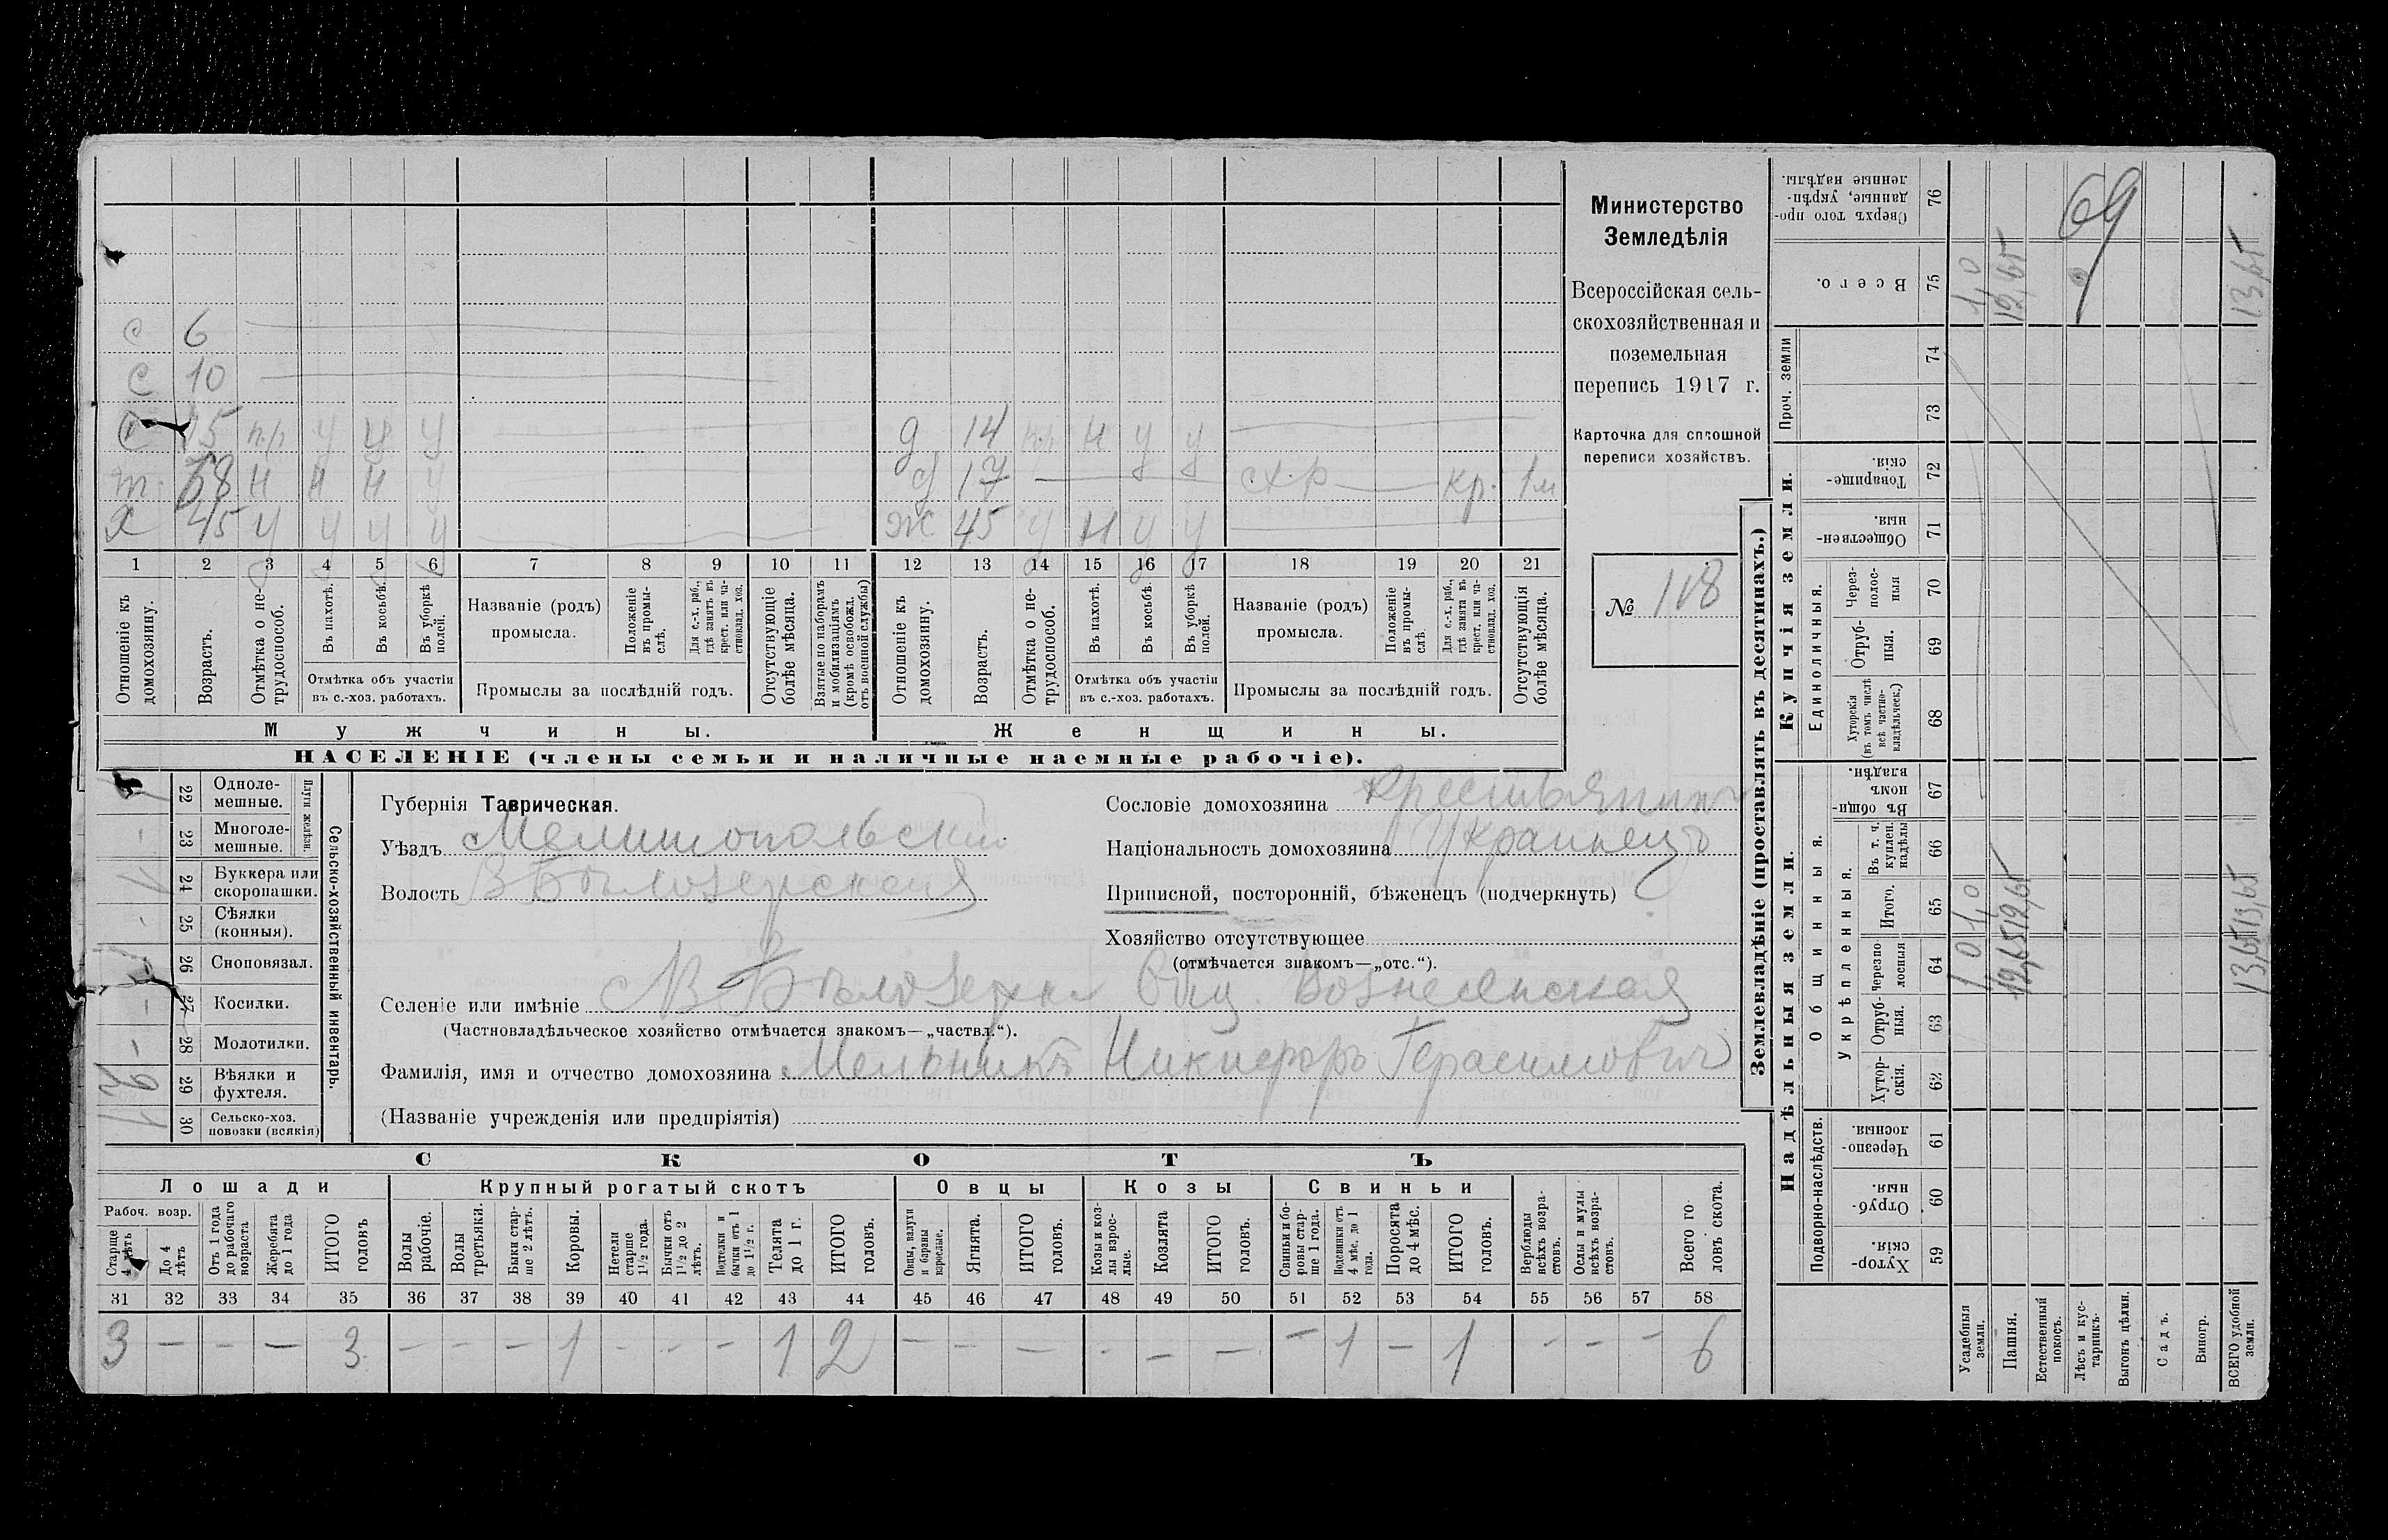 Министерство
Земледѣлія
Всероссійская сель-
скохозяйственная и
поземельная
перепись 1917 г.
Карточка для сплошной
переписи хозяйствъ.
№ 118
с 6
с 10
с 15 п.р у у у
т. 58 н н н у
х 45 у у у у
д 14 п.р н у у
д 17 — сх.р — кр. 1м
ж 45 у н у у
1 2 3 4 5 6 7 8 9 10 11 12 13 14 15 16 17 18 19 20 21
Отношеніе къ домохозяину.
Возрастъ.
Отмѣтка о не-трудоспособ.
Въ пахотѣ.
Въ косьбѣ.
Въ уборкѣ полей.
Отмѣтка объ участіи
въ с.-хоз. работахъ.
Названіе (родъ)
промысла.
Положеніе въ промы-слѣ.
Для с.-х. раб., гдѣ занятъ въ крест. или ча-стновлад. хоз.
Промыслы за послѣдній годъ.
Отсутствующіе болѣе мѣсяца.
Взятые по наборамъ и мобилизаціямъ (кромѣ освобожд. отъ военной службы)
Отношеніе къ домохозяину.
Возрастъ.
Отмѣтка о не-трудоспособ.
Въ пахотѣ.
Въ косьбѣ.
Въ уборкѣ полей.
Отмѣтка объ участіи
въ с.-хоз. работахъ.
Названіе (родъ)
промысла.
Положеніе въ промы-слѣ.
Для с.-х. раб., гдѣ занята въ крест. или ча-стновлад. хоз.
Промыслы за послѣдній годъ.
Отсутствующія болѣе мѣсяца.
Мужчины.
Женщины.
НАСЕЛЕНІЕ (члены семьи и наличные наемные рабочіе).
Сельско-хозяйственный инвентарь.
Плуги желѣзн.
22 Одноле-мешные. 1
23 Многоле-мешные. -
24 Буккера или скоропашки. 1
25 Сѣялки (конныя). -
26 Сноповязал.
27 Косилки. -
28 Молотилки. -
29 Вѣялки и фухтеля.
30 Сельско-хоз. повозки (всякія)
Губернія Таврическая.
Уѣздъ Мелитопольскій
Волость В Бѣлозерская
Сословіе домохозяина Крестьянинъ
Національность домохозяина Украинецъ
Приписной, посторонній, бѣженецъ (подчеркнуть)
Хозяйство отсутствующее
(отмѣчается знакомъ—„отс.“).
Селеніе или имѣніе В Бѣлозерка Общ. Вознесенская
(Частновладѣльческое хозяйство отмѣчается знакомъ—„частвл.“).
Фамилія, имя и отчество домохозяина Мельникъ Никифоръ Герасимович
(Названіе учрежденія или предпріятія)
СКОТЪ
Лошади
Крупный рогатый скотъ
Овцы
Козы
Свиньи
Рабоч. возр.
Старше 4 лѣтъ
До 4 лѣтъ
Отъ 1 года до рабочаго возраста
Жеребята до 1 года
ИТОГО головъ
Волы рабочіе.
Волы третьяки.
Быки стар-ше 2 лѣтъ.
Коровы.
Нетели старше 1½ года.
Бычки отъ 1½ до 2 лѣтъ.
Подтелки и бычки отъ 1 до 1½ г.
Телята до 1 г.
ИТОГО головъ.
Овцы, валухи и бараны взрослые.
Ягнята.
ИТОГО головъ.
Козы и коз-лы взрос-лые.
Козлята
ИТОГО головъ.
Свиньи и бо-ровы стар-ше 1 года.
Подсвинки отъ 4 мѣс. до 1 года.
Поросята до 4 мѣс.
ИТОГО головъ.
Верблюды всѣхъ возра-стовъ.
Ослы и мулы всѣхъ возра-стовъ.
Всего го-ловъ скота.
31 32 33 34 35 36 37 38 39 40 41 42 43 44 45 46 47 48 49 50 51 52 53 54 55 56 57 58
3 — — — 3 — — — 1 - - - 1 2 — — — - — — — 1 — 1 - - — 6
Землевладѣніе (проставлять въ десятинахъ.)
Надѣльныя земли.
Купчія земли.
Проч. земли
Подворно-наслѣдств.
Общинныя.
Укрѣпленныя.
Единоличныя.
Сверхъ того про-данные, укрѣп-ленные надѣлы. 76
Всего. 75
74
73
Товарище-скія. 72
Обществен-ныя. 71
Через-полос-ныя 70
Отруб-ныя. 69
Хуторскія (въ томъ числѣ всѣ частно-владѣльческ.) 68
Въ общи-номъ владѣн. 67
Въ т. ч. куплен. надѣлы 66
Итого. 65
Черезпо-лосныя 64
Отруб-ныя. 63
Хутор-скія. 62
Черезпо-лосныя. 61
Отруб-ныя. 60
Хутор-скія. 59
Усадебныя земли. 1,0 1,0 1,0
Пашня. 12,65 12,65 12,65
Естественный покосъ.
Лѣсъ и кус-тарникъ.
Выгонъ цѣлин.
Садъ.
Виногр.
ВСЕГО удобной земли. 13,65 13,65 13,65
69